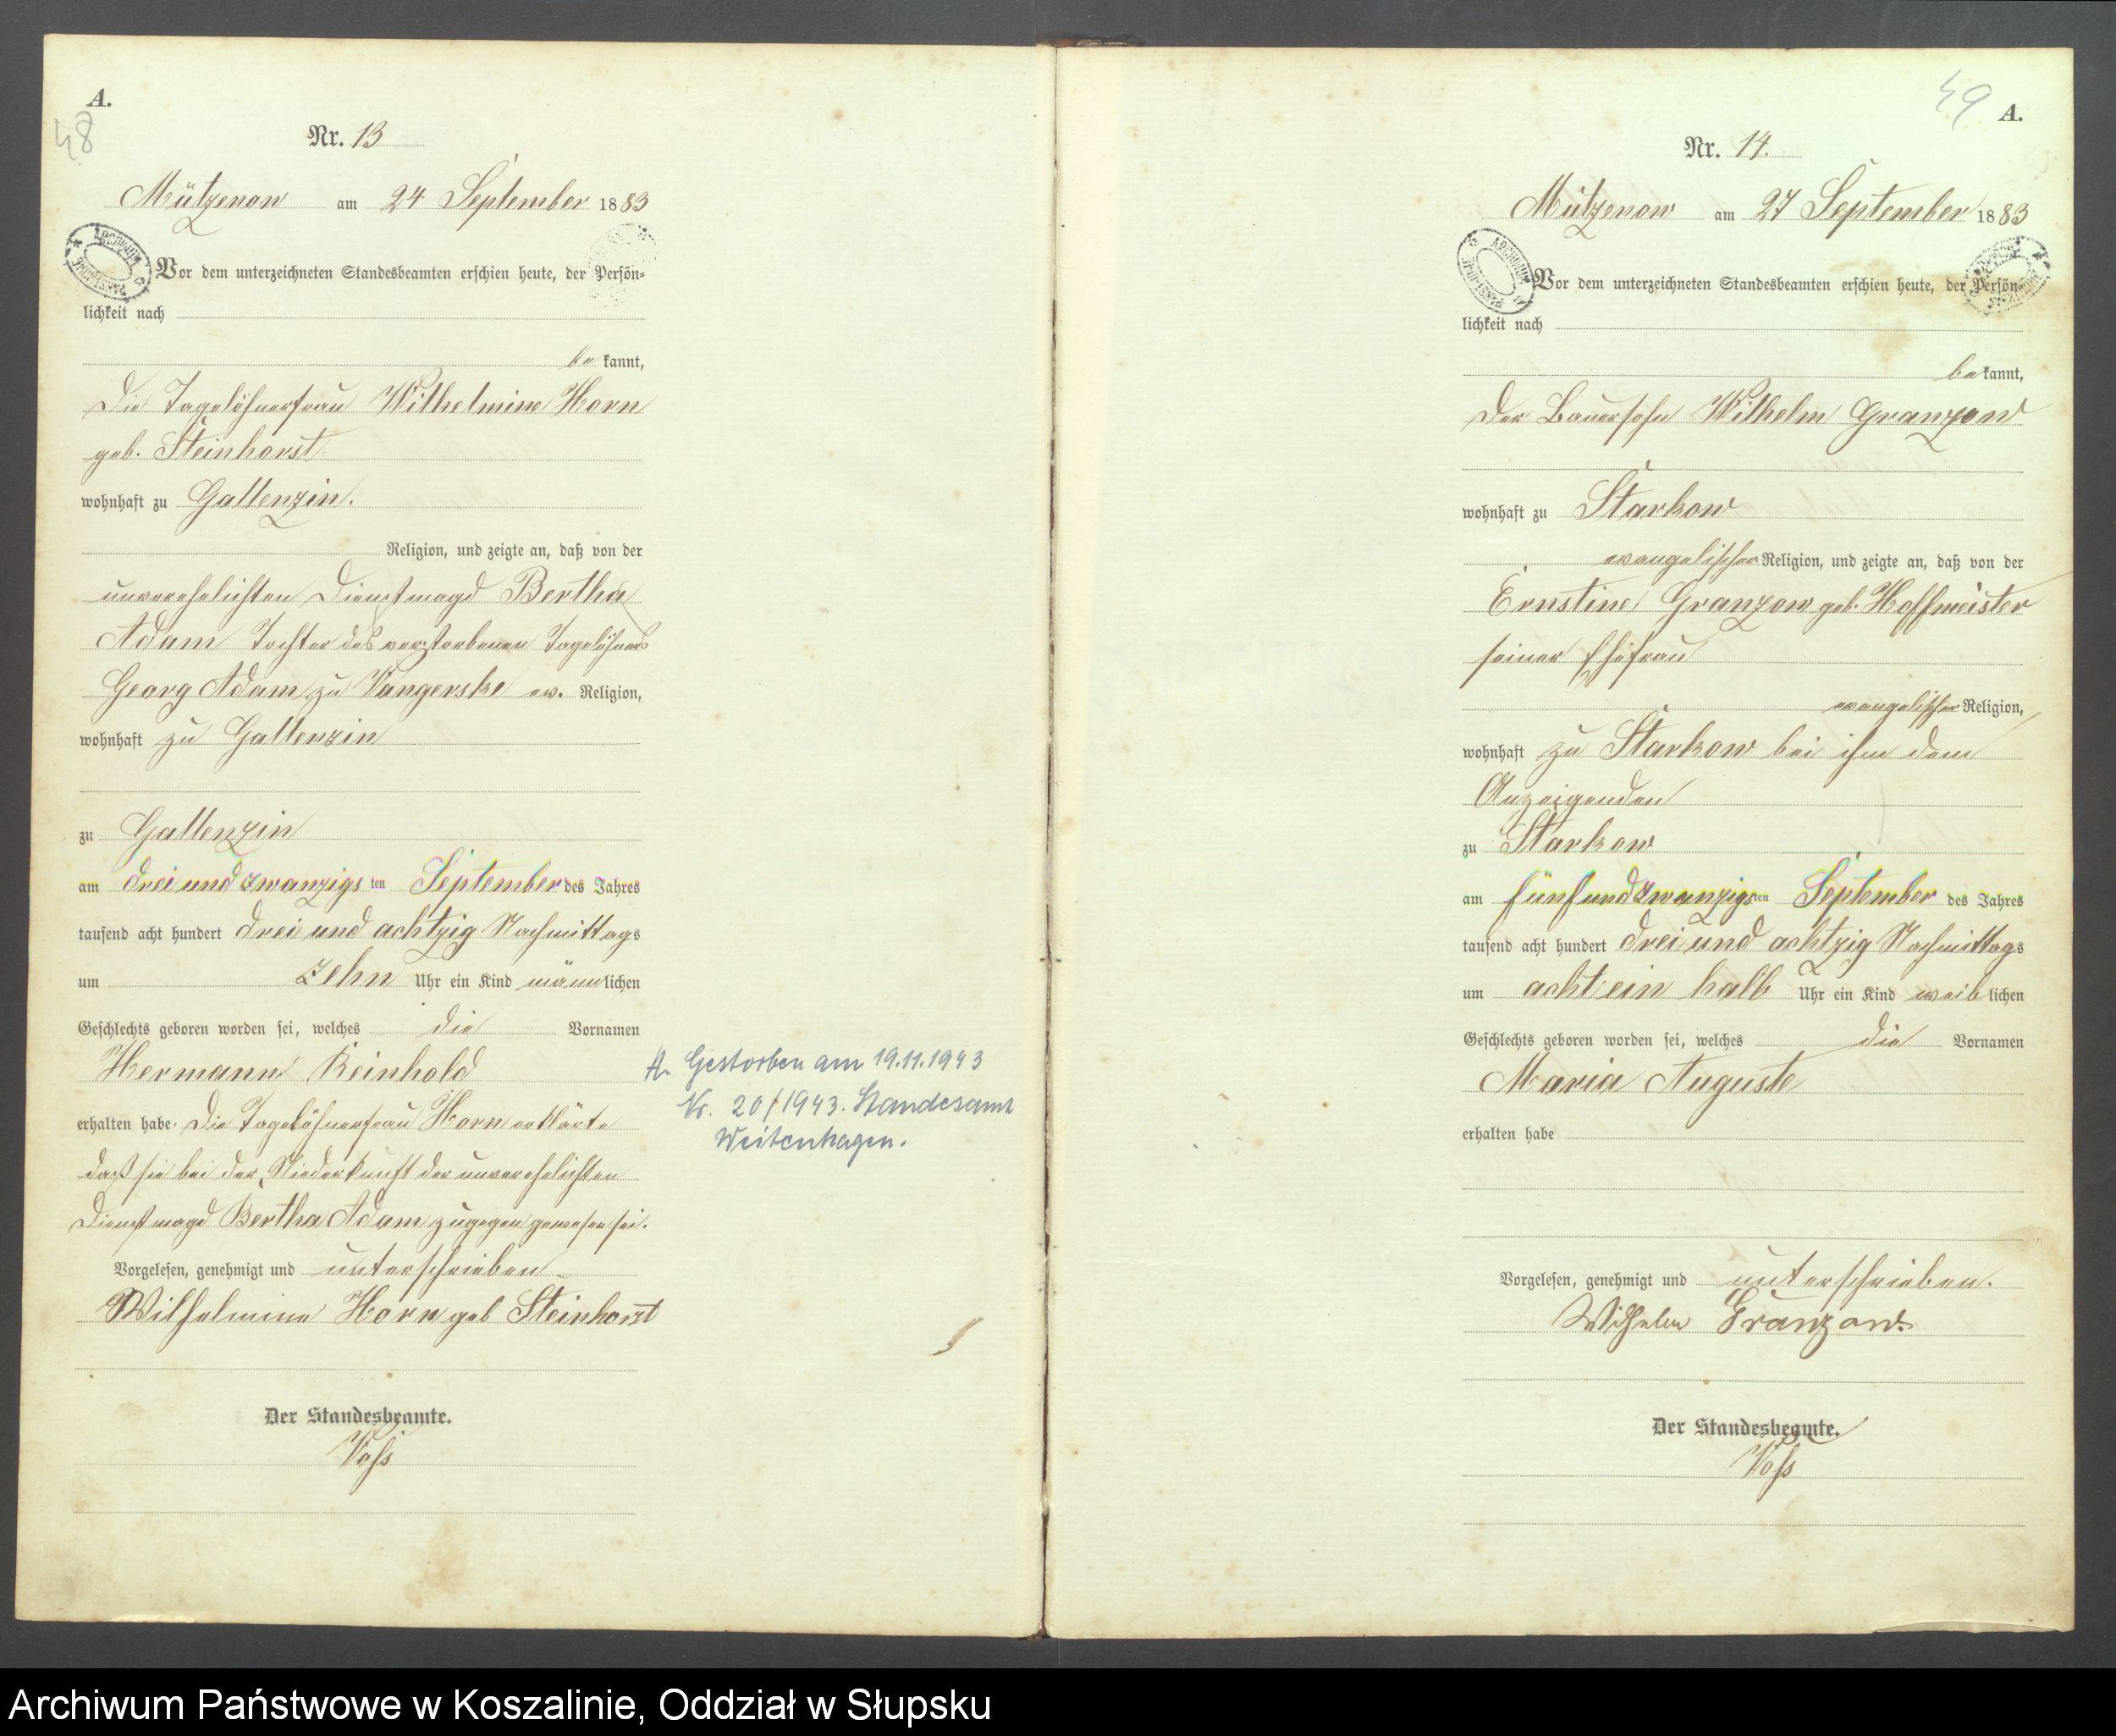 A.
48
Nr. 13
Mützenow am 24 September 1883
Vor dem unterzeichneten Standesbeamten erschien heute, der Persön=
lichkeit nach
be kannt,
Die Tagelöhnerfrau Wilhelmine Horn
geb. Steinhorst
wohnhaft zu Gallenzin.
Religion, und zeigte an, daß von der
unverehelichten Dienstmagd Bertha
Adam Tochter des verstorbenen Tagelöhners
Georg Adam zu Vangerske ev. Religion,
wohnhaft zu Gallenzin
zu Gallenzin
am drei und zwanzigs ten September des Jahres
tausend acht hundert drei und achtzig Nachmittags
um zehn Uhr ein Kind männlichen
Geschlechts geboren worden sei, welches die Vornamen
Hermann Reinhold
erhalten habe. Die Tagelöhnerfrau Horn erklärte
daß sie bei der Niederkunft der unverehelichten
Dienstmagd Bertha Adam zugegen gewesen sei.
Vorgelesen, genehmigt und unterschrieben
Wilhelmine Horn geb Steinhorst
Der Standesbeamte.
Voß
Gestorben am 19.11.1943
Nr. 20/1943. Standesamt
Weitenhagen.
49
A.
Nr. 14.
Mützenow am 27 September 1883
Vor dem unterzeichneten Standesbeamten erschien heute, der Persön=
lichkeit nach
be kannt,
Der Bauersohn Wilhelm Granzow
wohnhaft zu Starkow
evangelischer Religion, und zeigte an, daß von der
Ernstine Granzow geb. Hoffmeister
seiner Ehefrau
evangelischer Religion,
wohnhaft zu Starkow bei ihm dem
Anzeigenden
zu Starkow
am fünf und zwanzigs ten September des Jahres
tausend acht hundert drei und achtzig Nachmittags
um acht ein halb Uhr ein Kind weiblichen
Geschlechts geboren worden sei, welches die Vornamen
Maria Auguste
erhalten habe
Vorgelesen, genehmigt und unterschrieben.
Wilhelm Granzow.
Der Standesbeamte.
Voß
Archiwum Państwowe w Koszalinie, Oddział w Słupsku